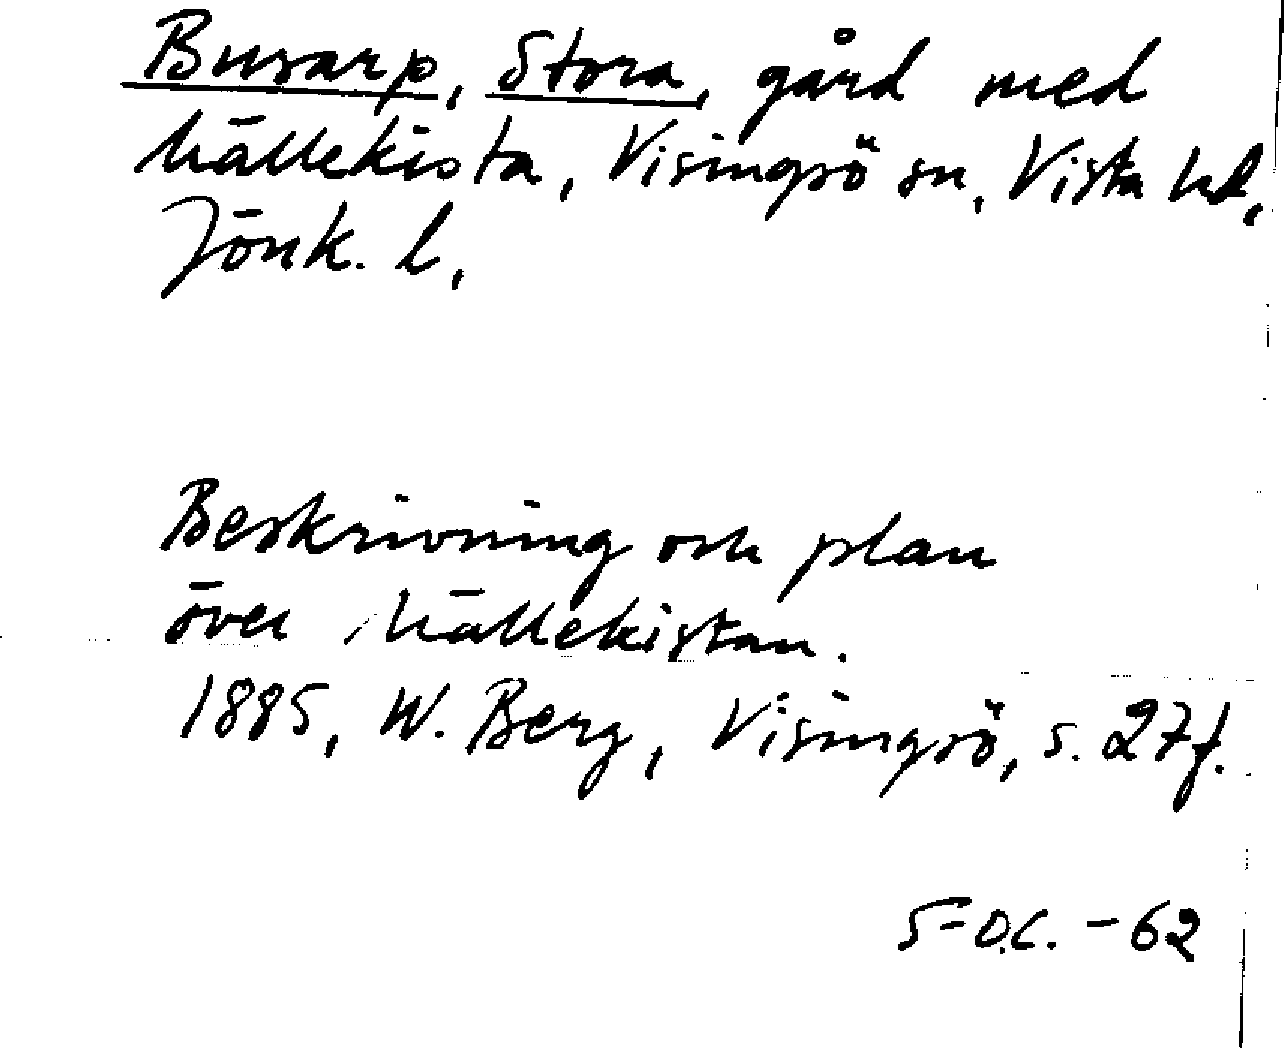 Busarp, Stora, gård med
hällekista, Visingsö sn, Vista hd,
Jönk. l.
Beskrivning och plan
över hällekistan.
1885, W. Berg, Visingsö, s. 27f.
-62